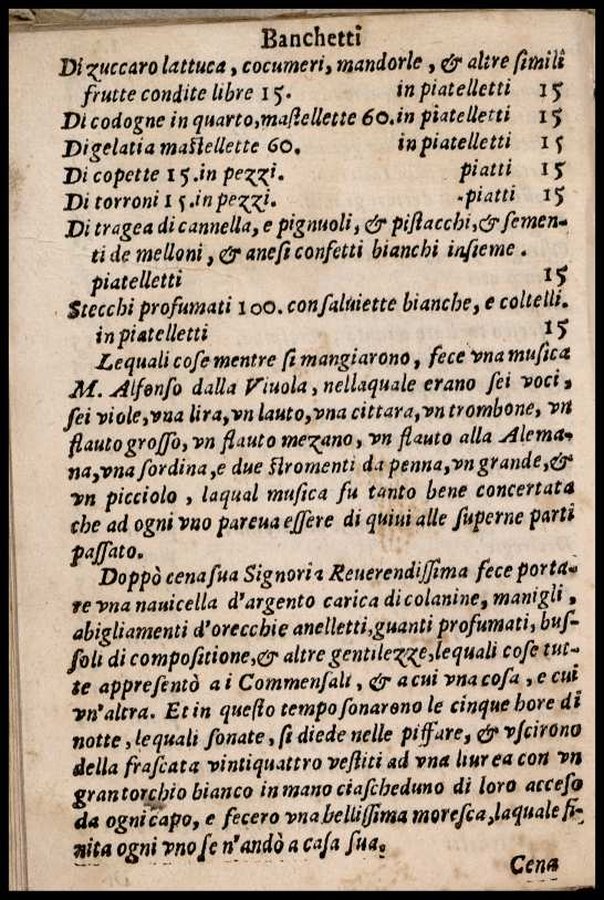 Banchetti
Di zuccaro lattuca, cocumeri, mandorle, & altre simili
frutte condite libre 15. in piatelletti 15
Di codogne in quarto, mastellette 60. in piatelletti 15
Di gelatia mastellette 60. in piatelletti 15
Di copette 15. in pezzi. piatti 15
Di torroni 15. in pezzi. piatti 15
Di tragea di cannella, e pignuoli, & pistacchi, & semen-
ti de melloni, & anesi confetti bianchi insieme.
piatelletti 15
Stecchi profumati 100. con saluiette bianche, e coltelli.
in piatelletti 15
Lequali cose mentre si mangiarono, fece vna musica
M. Alfonso dalla Viuola, nellaquale erano sei voci,
sei viole, vna lira, vn lauto, vna cittara, vn trombone, vn
flauto grosso, vn flauto mezano, vn flauto alla Alema-
na, vna sordina, e due stromenti da penna, vn grande, &
vn picciolo, laqual musica fu tanto bene concertata
che ad ogni vno pareua essere di quiui alle superne parti
passato.
Doppò cena sua Signoria Reuerendissima fece porta-
re vna nauicella d'argento carica di colanine, manigli,
abigliamenti d'orecchie anelletti, guanti profumati, bus-
soli di compositione, & altre gentilezze, lequali cose tut-
te appresentò a i Commensali, & a cui vna cosa, e cui
vn'altra. Et in questo tempo sonarono le cinque hore di
notte, lequali sonate, si diede nelle piffare, & vscirono
della frascata vintiquattro vestiti ad vna liurea con vn
gran torchio bianco in mano ciascheduno di loro acceso
da ogni capo, e fecero vna bellissima moresca, laquale fi-
nita ogni vno se n'andò a casa sua.
Cena